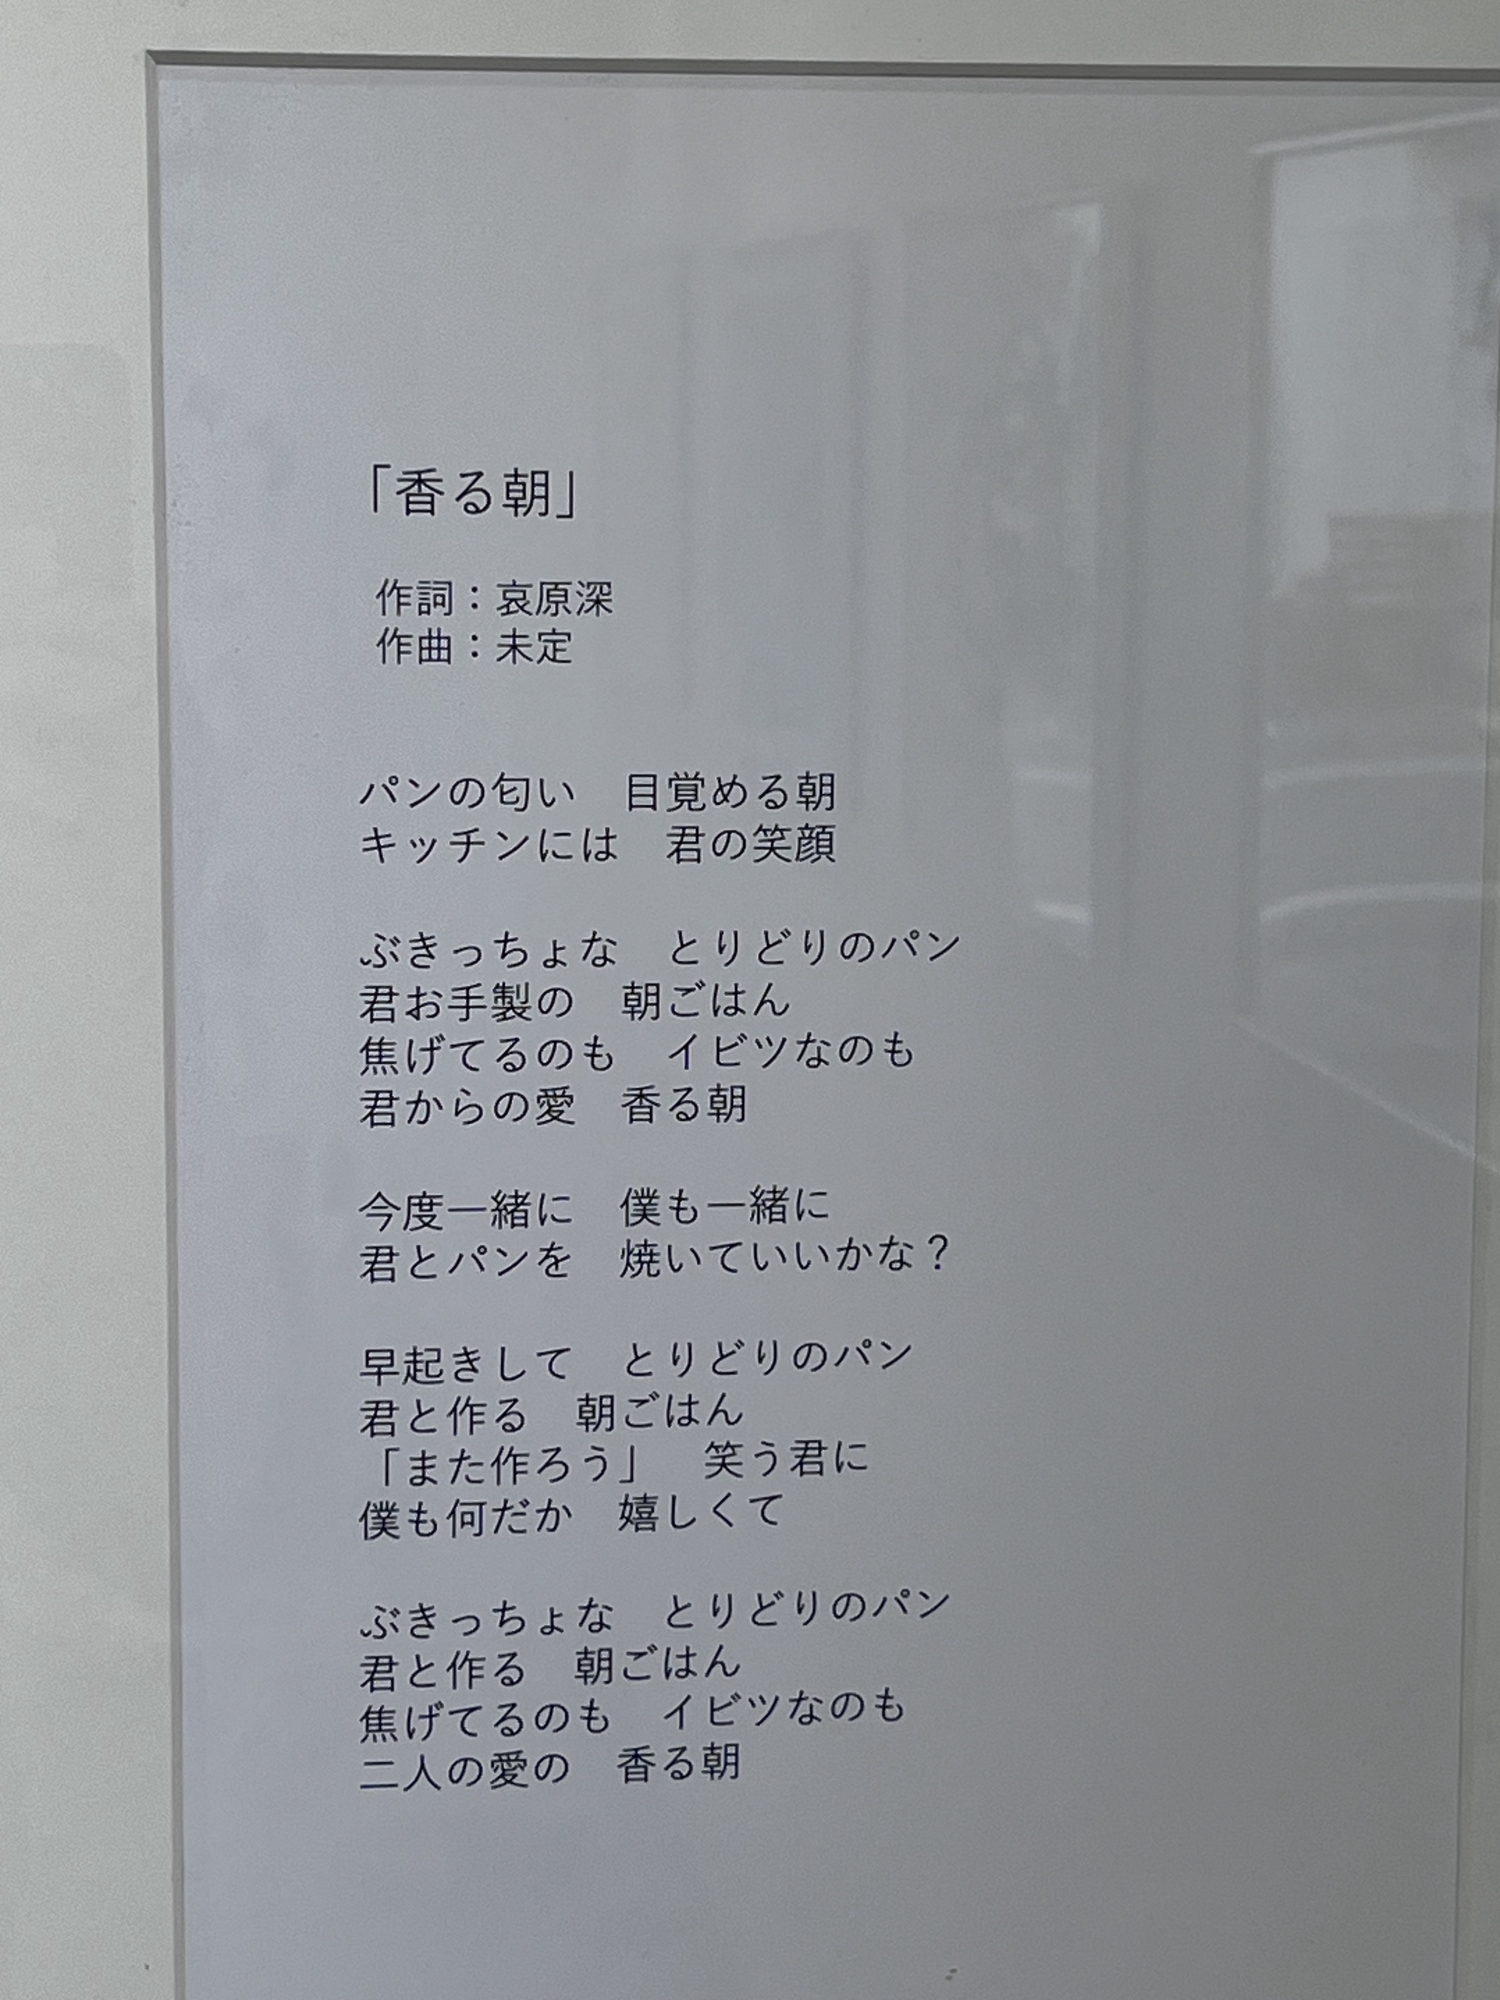 「香る朝」
作詞：哀原深
作曲：未定
パンの匂い　目覚める朝
キッチンには　君の笑顔
ぶきっちょな　とりどりのパン
君お手製の　朝ごはん
焦げてるのも　イビツなのも
君からの愛　香る朝
今度一緒に　僕も一緒に
君とパンを　焼いていいかな？
早起きして　とりどりのパン
君と作る　朝ごはん
「また作ろう」　笑う君に
僕も何だか　嬉しくて
ぶきっちょな　とりどりのパン
君と作る　朝ごはん
焦げてるのも　イビツなのも
二人の愛の　香る朝